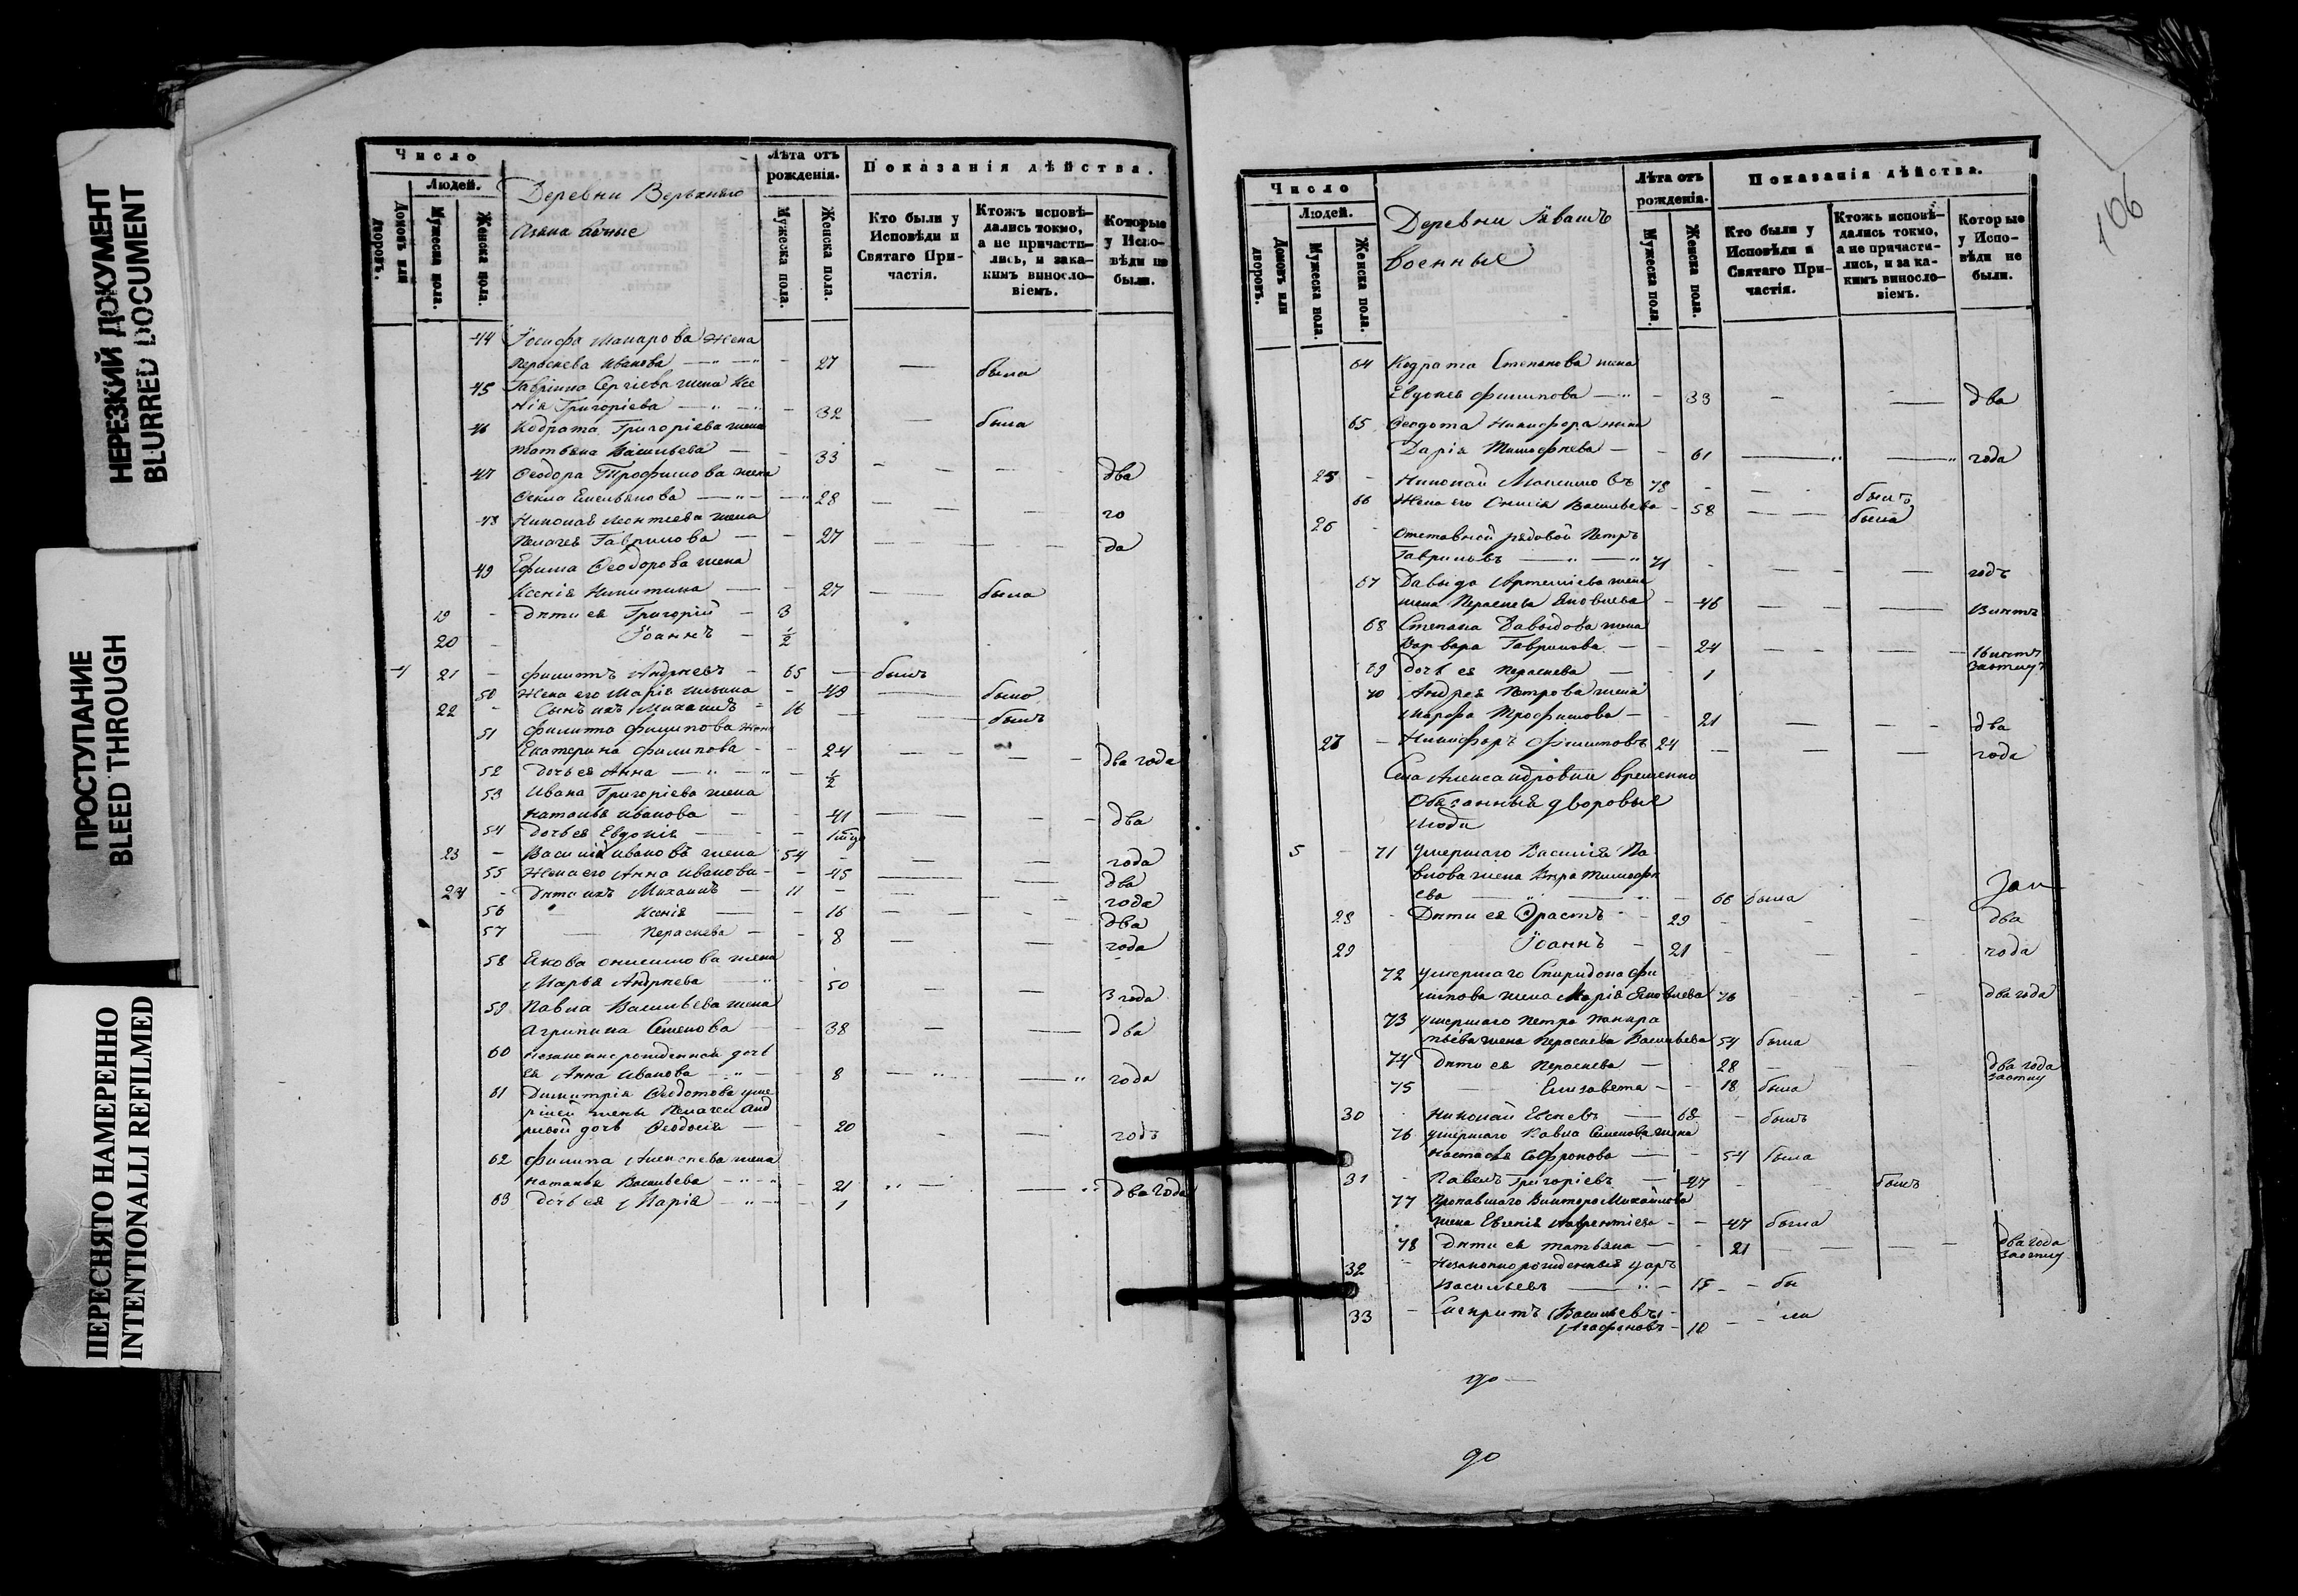 НЕРЕЗКИЙ ДОКУМЕНТ
BLURRED DOCUMENT
ПРОСТУПАНИЕ
BLEED THROUGH
ПЕРЕСНЯТО НАМЕРЕННО
INTENTIONALLI REFILMED
Число
Людей.
Домовъ или дворовъ.
Мужеска пола.
Женска пола.
Деревни Верьхняго
Лѣта отъ рожденія.
Мужеска пола.
Женска пола.
Показанія дѣйства.
Кто были у Исповѣди и Святаго Причастія.
Ктожъ исповѣдались токмо, а не причастились, и закакимъ винословіемъ.
Которые у Исповѣди не были.
44 Іосифа Макарова жена
Параскева Иванова 27 была
45 Гавріила Сергіева жена Ксе
нія Григоріева 32
46 Кодрата Григоріева жена была
татьяна Васильева 33
47 Ѳеодора Трофимова жена два
Ѳекла Емельянова 28
48 Николая Леонтіева жена го
Пелагея Гаврилова 27 да
49 Ефима Ѳеодорова жена
Ксенія Никитина 27 была
19 дѣти ея Григорій 3
20 Іоаннъ ½
4 21 филиппъ Андреевъ 65 былъ
50 Жена его Марія 49 была
22 Сынъ ихъ Михаилъ 16 былъ
51 филиппа филипова жена
Екатерина филипова 24 два года
52 дочь ея Анна ½
53 Ивана Григоріева жена
наталья иванова 41 два
54 дочь ея Евдокія
23 Василій ивановъ жена 54 года
55 Жена его Анна Иванова 45 два
24 дѣти ихъ Михаилъ 11 года
56 Ксенія 16 два
57 Параскева 8 года
58 Якова онисимова жена
Марья Андреева 50 3 года
59 Павла Васильева жена
Агрипина Семенова 38 два
60 незаконнорожденная дочь
ея Анна Иванова 8 года
61 Димитрія Ѳедотова уме
ршей жены Пелагеи Анд
реевой дочь Ѳеодосія 20 годъ
62 филиппа Алексеева жена
наталья Васильева 21 два года
63 дочь ея Марія 1
106
Число
Людей.
Домовъ или дворовъ.
Мужеска пола.
Женска пола.
Деревни
военные
Лѣта отъ рожденія.
Мужеска пола.
Женска пола.
Показанія дѣйства.
Кто были у Исповѣди и Святаго Причастія.
Ктожъ исповѣдались токмо, а не причастились, и за какимъ винословіемъ.
Которые у Исповѣди не были.
64 Кодрата Степанова жена
Евдокея филипова 33 два
65 Ѳеодота Никифора жена
Дарія Тимофеева 61 года
25 Николай 78 былъ
66 Жена его Васильева 58 была
26 Отставной рядовой Петръ
Гавриловъ 71 годъ
67 Давыда Артеміева жена
жена Параскева Яковлева 46
68 Степана Давыдова жена
Варвара Гаврилова 24
69 дочь ея Параскева 1
70 Андрея Петрова жена
Марфа Трофимова 21 два
27 Никифоръ филиповъ 24 года
Села Александровки временно
Обязанныя дворовые
люди
5 71 умершаго Василія Па
влова жена Вера Тимофе
ева 66 была
28 Дѣти ея Ерастъ 29 два
29 Іоаннъ 21 года
72 умершаго Спиридона фи
липова жена Марія Яковлева 76 два года
73 умершаго Петра Панкра
тьева жена Параскева Васильева 54 была
74 дѣти ея Параскева 28 два года
75 Елизавета 18 была
30 Николай 68 былъ
76 умершаго Павла Семенова жена
настасья Софронова 54 была
31 Павелъ Григоріевъ 27 былъ
77 Пропавшаго Виктора Михайлова
жена Евгенія Лаврентіева 47 была
78 дѣти ея татьяна 21 два года
32 Незаконнорожденныя
Васильевъ 15 бы
33 Васильевъ
Агафоновъ 10 ли